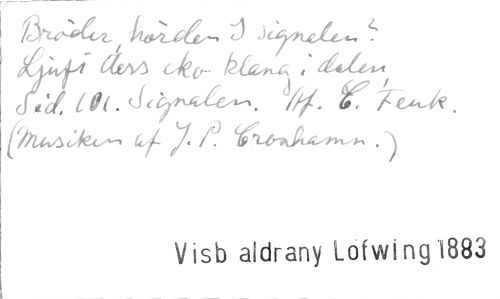 Bröder, hörden I signalen?
Ljuft dess eko klang i dalen,
Sid. 101. Signalen. Af. C. Fenk.
(Musiken af J. P. Cronhamn.)
Visb aldrany Löfwing 1883